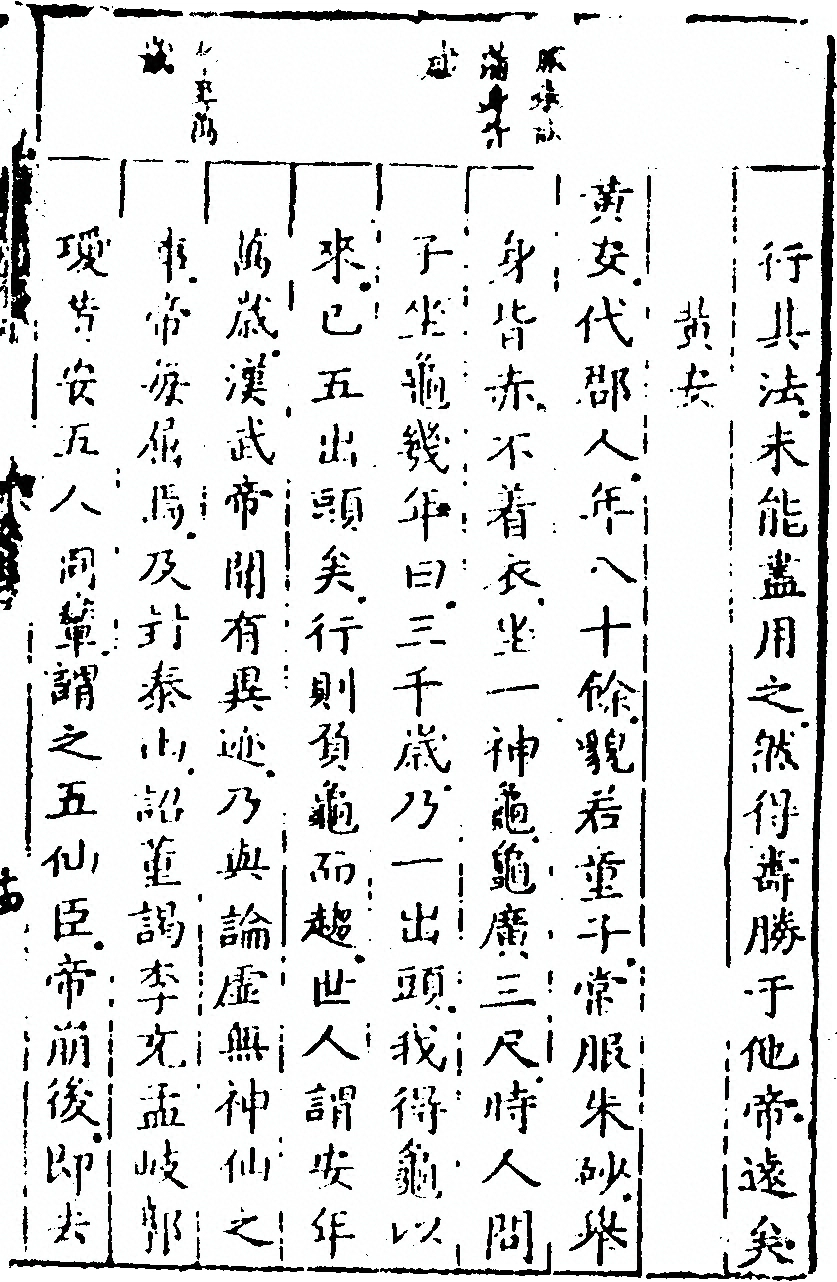 服硃砂
滿身亦
行其法未能盡用之然得壽勝于他帝遠矣
黃安
黃安代郡人年八十餘貌若童子常服朱砂舉
身皆赤不着衣坐一神龜龜廣三尺時人問
子坐龜幾年曰三千歲乃一出頭我得龜以
來已五出頭矣行則負龜而趨世人謂安年
萬歲漢武帝聞有異迹乃與論虛無神仙之
事帝每屈焉及封泰山詔董謁李充孟岐郭
瓊黃安五人同輦謂之五仙臣帝崩後即去